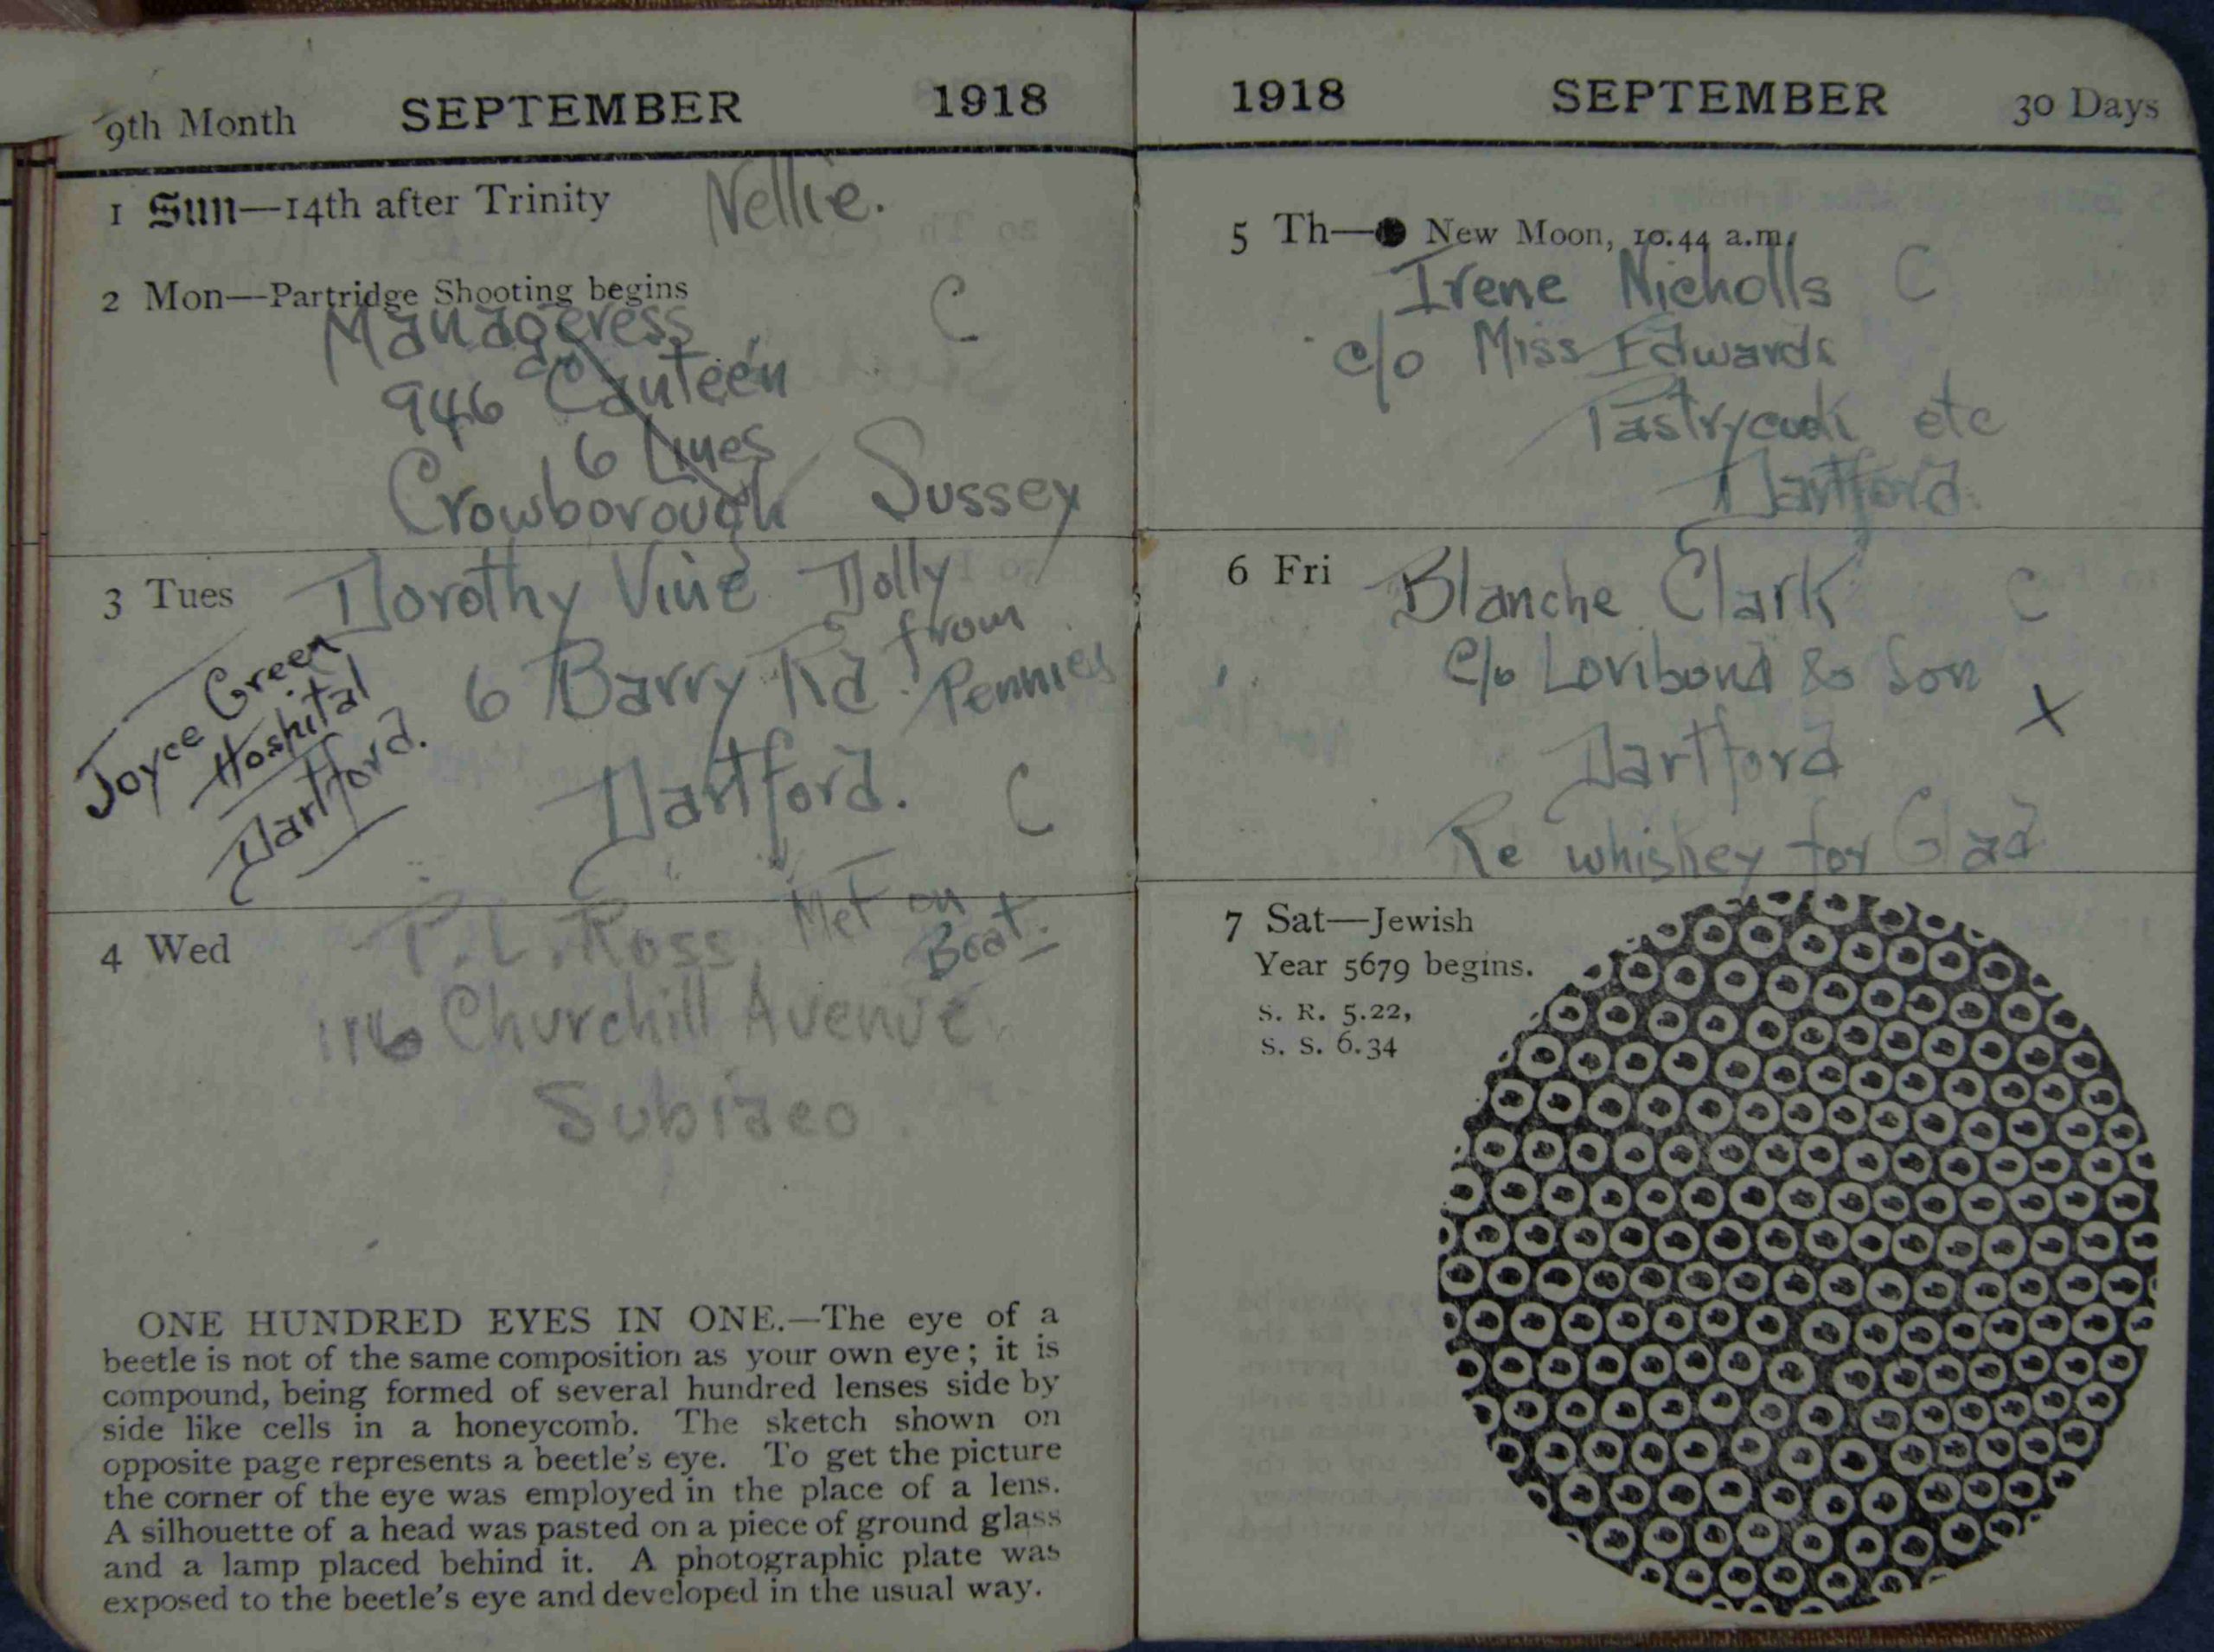 9th Month SEPTEMBER 1918
1 Sun—14th after Trinity Nellie.
2 Mon—Partridge Shooting begins C
Manageress
946 Canteen
6 Lines
Crowborough Sussex
3 Tues Dorothy Vine Dolly
from
6 Barry Rd. Pennies
Dartford. C
Joyce Green
Hospital
Dartford.
4 Wed P. L. Ross. Met on
Boat.
116 Churchill Avenue
Subiaco.
ONE HUNDRED EYES IN ONE.—The eye of a
beetle is not of the same composition as your own eye; it is
compound, being formed of several hundred lenses side by
side like cells in a honeycomb. The sketch shown on
opposite page represents a beetle's eye. To get the picture
the corner of the eye was employed in the place of a lens.
A silhouette of a head was pasted on a piece of ground glass
and a lamp placed behind it. A photographic plate was
exposed to the beetle's eye and developed in the usual way.
1918 SEPTEMBER 30 Days
5 Th—● New Moon, 10.44 a.m.
Irene Nicholls C
c/o Miss Edwards
Pastrycook etc
Dartford.
6 Fri Blanche Clark C
C/o Loribond & Son
X
Dartford
Re whiskey for Glad
7 Sat—Jewish
Year 5679 begins.
S. R. 5.22,
S. S. 6.34